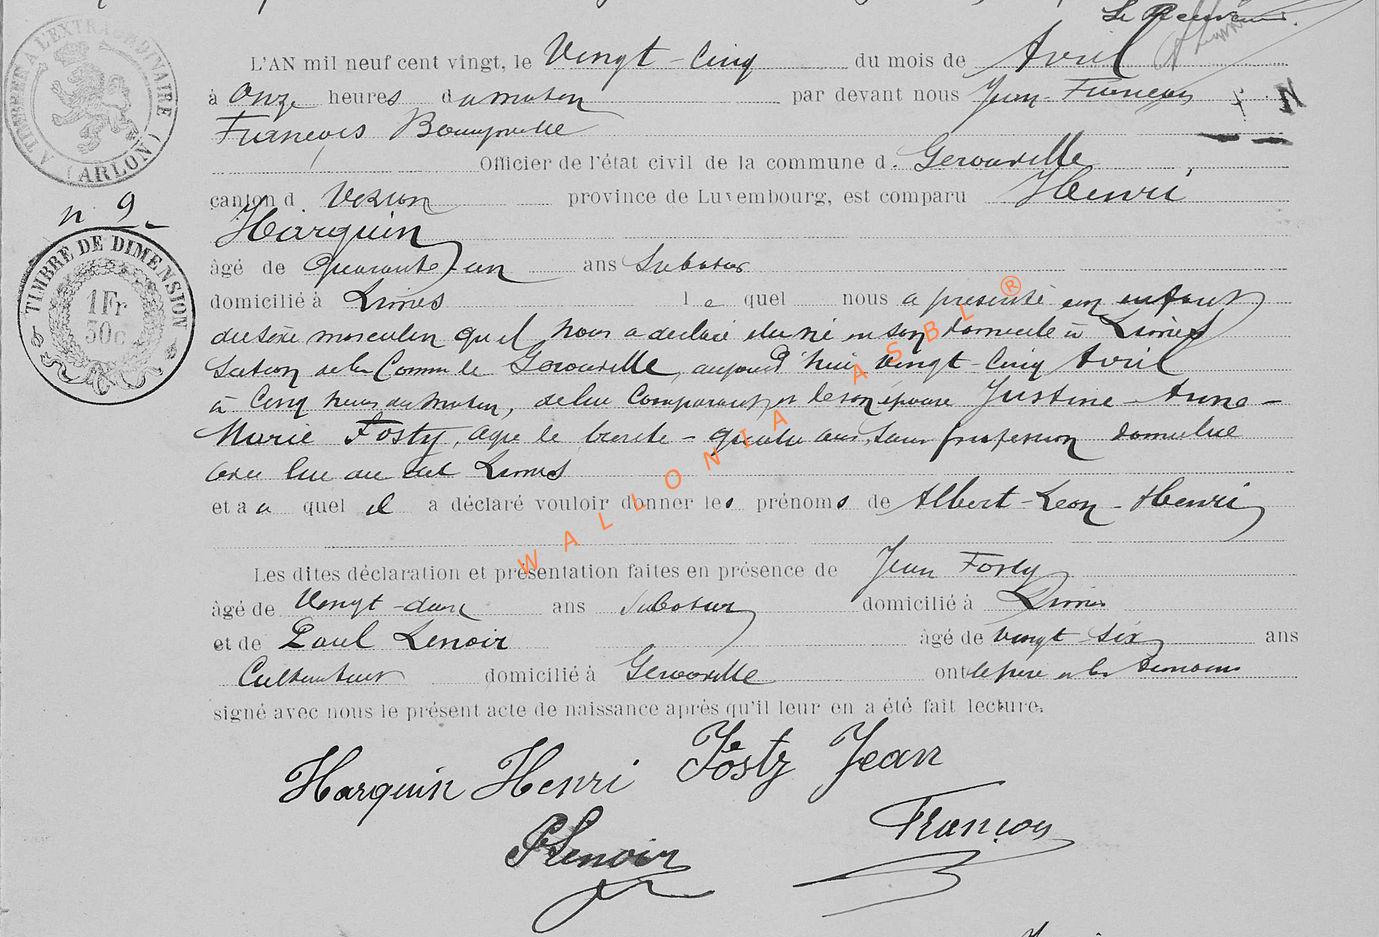 Le Receveur.
L'AN mil neuf cent vingt, le Vingt-Cinq du mois de Avril
à Onze heures du matin par devant nous Jean-François
François
Officier de l'état civil de la commune d. Gerouville
canton d Virton province de Luxembourg, est comparu Henri
Harquin
âgé de Quarante un ans Sabotier
domicilié à Limes le quel nous a présenté un enfant
du sexe masculin qu'il nous a déclaré être né en son domicile à Limes
Section de la Commune de Gerouville, aujourd'hui Vingt-Cinq Avril
à Cinq heures du matin, de lui Comparant et de son épouse Justine-Anne-
Marie Fosty, agée de trente-quatre ans, sans profession domiciliée
avec lui au dit Limes
et au quel il a déclaré vouloir donner les prénoms de Albert-Leon-Henri
Les dites déclaration et présentation faites en présence de Jean Fosty
âgé de Vingt-deux ans Sabotier domicilié à Limes
et de Paul Lenoir âgé de vingt six ans
Cultivateur domicilié à Gerouville ont le père et les témoins
signé avec nous le présent acte de naissance après qu'il leur en a été fait lecture.
Harquin Henri Fosty Jean
PLenoir François
TIMBRE A L'EXTRAORDINAIRE
(ARLON)
n 9
TIMBRE DE DIMENSION
1Fr
30c
WALLONIA ASBL®